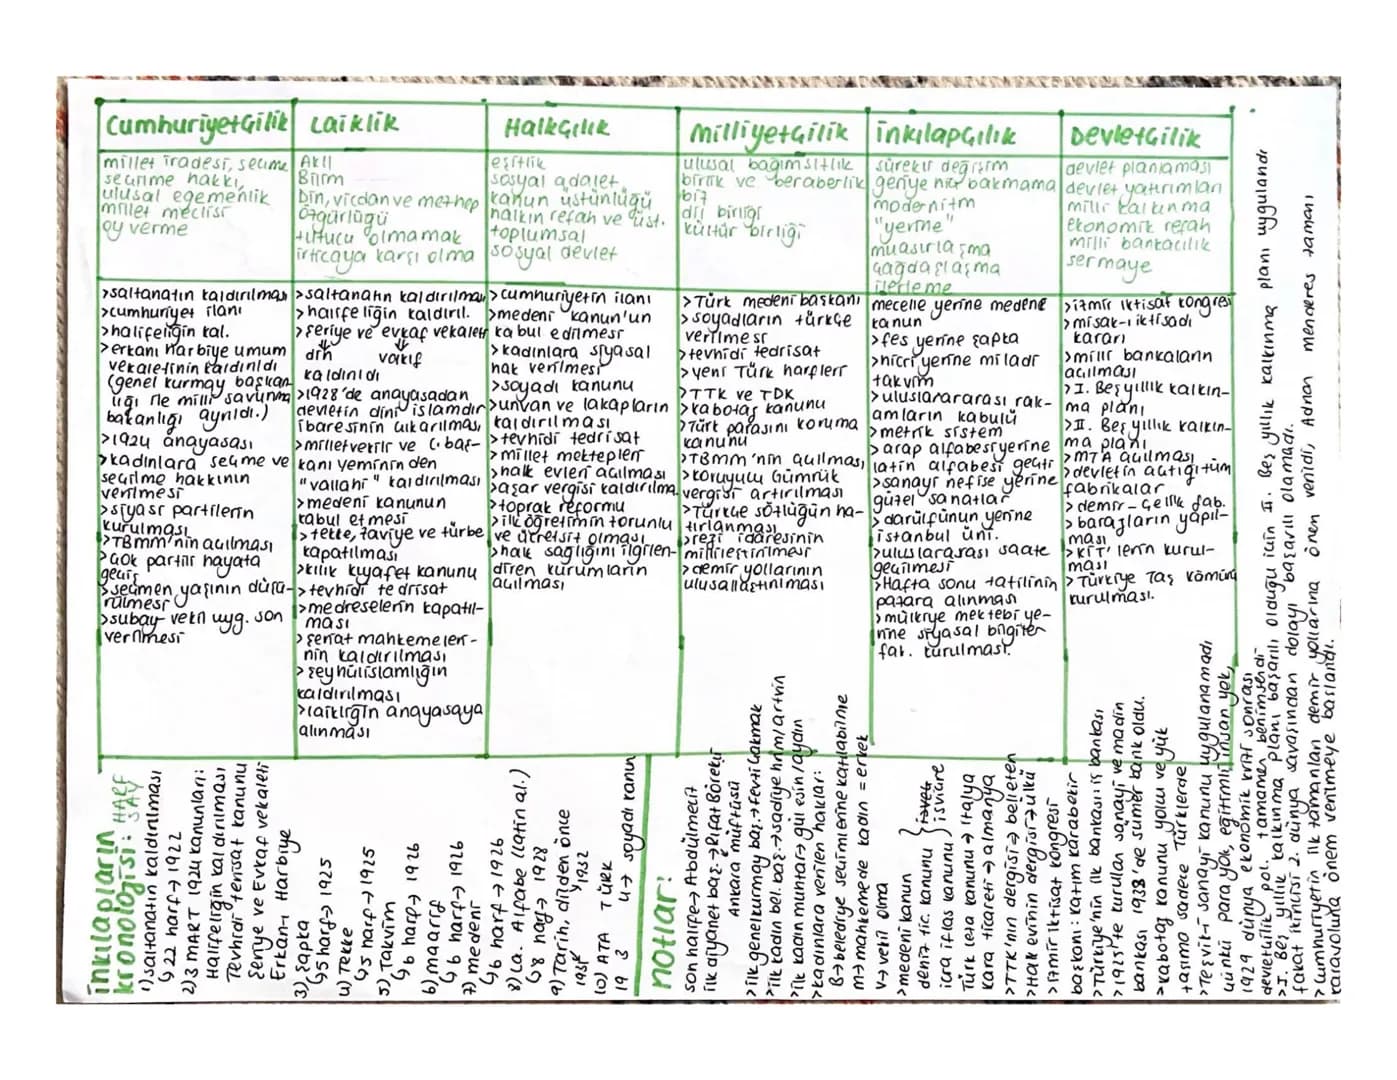 Cumhuriyetçilik
millet iradesi, seçme
seçilme hakkı,
ulusal egemenlik
millet meclisi
oy verme
>saltanatın kaldırılması
>cumhuriyet ilanı
>halifeliğin kal.
>erkanı harbiye umum
vekaletinin kaldırıldı
(genel kurmay başkan
lığı ile milli savunma
bakanlığı ayrıldı.)
>1924 anayasası
>kadınlara seçme ve
seçilme hakkının
verilmesi
>siyasi partilerin
kurulması
>TBMM'nin açılması
>çok partili hayata
geçiş
>seçmen yaşının düşü-
rülmesi
>subay vekil uyg. son
verilmesi
Laiklik
Akıl
Bilim
Din, vicdan ve mezhep
özgürlüğü
tutucu olmamak
irticaya karşı olma
>saltanatın kaldırılması
>halifeliğin kaldırıl.
>şeriye ve evkaf vekaleti
din vakıf
kaldırıldı
>1928'de anayasadan
devletin dini islamdır
ibaresinin çıkarılması
>milletvekili ve c. baş-
kanı yeminin den
"vallahi" kaldırılması
>medeni kanunun
kabul etmesi
>tekke, zaviye ve türbe
kapatılması
>kılık kıyafet kanunu
>tevhidi tedrisat
>medreselerin kapatıl-
ması
>şeriat mahkemeleri-
nin kaldırılması
>şeyhülislamlığın
kaldırılması
>laikliğin anayasaya
alınması
Halkçılık
eşitlik
sosyal adalet
kanun üstünlüğü
halkın refah ve üst.
toplumsal
sosyal devlet
>cumhuriyetin ilanı
>medeni kanun'un
kabul edilmesi
>kadınlara siyasal
hak verilmesi
>soyadı kanunu
>unvan ve lakapların
kaldırılması
>tevhidi tedrisat
>millet mektepleri
>halk evleri açılması
>aşar vergisi kaldırılma.
>toprak reformu
>ilk öğretimin zorunlu
ve ücretsiz olması
>halk sağlığını ilgilen-
diren kurumların
açılması
Milliyetçilik
ulusal bağımsızlık
birlik ve beraberlik
biz
dil birliği
kültür birliği
>Türk medeni başkanı
>soyadların türkçe
verilmesi
>tevhidi tedrisat
>yeni Türk harfleri
>TTK ve TDK
>kabotaj kanunu
>Türk parasını koruma
kanunu
>TBMM'nin açılması
>koruyucu Gümrük
vergisi artırılması
>Türkçe sözlüğün ha-
zırlanması
>reji idaresinin
millileştirilmesi
>demir yollarının
ulusallaştırılması
inkılapçılık
sürekli değişim
geriye hiç bakmama
modernizm
"yerine"
muasırlaşma
çağdaşlaşma
ilerleme
mecelle yerine medene
kanun
>fes yerine şapka
>hicri yerine miladi
takvim
>uluslarararası rak-
amların kabulü
>metrik sistem
>arap alfabesi yerine
latin alfabesi geçti
>sanayi nefise yerine
güzel sanatlar
>darülfünun yerine
istanbul üni.
>uluslararası saate
geçilmesi
>Hafta sonu tatilinin
pazara alınması
>mülkiye mektebi ye-
rine siyasal bilgiler
fak. kurulması.
Devletçilik
devlet planlaması
devlet yatırımları
milli kalkınma
ekonomik refah
milli bankacılık
sermaye
>izmir iktisat kongresi
>misak-ı iktisadı
kararı
>milli bankaların
açılması
>I. Beş yıllık kalkın-
ma planı
>I. Beş yıllık kalkın-
ma planı
>MTA açılması
>devletin açtığı tüm
fabrikalar
>demir-çelik fab.
>barajların yapıl-
ması
>KİT'lerin kurul-
ması
>Türkiye Taş Kömürü
kurulması.
inkılapların
kronolojisi: HARF SAY
1) saltanatın kaldırılması
↳ 22 harf → 1922
2) 3 MART 1924 kanunları:
Halifeliğin kaldırılması
Tevhidi tenisat kanunu
Şeriye ve Evkaf vekaleti
Erkan-ı Harbiye
3) şapka
↳ 5 harf → 1925
4) Tekke
↳ 5 harf → 1925
5) Takvim
↳ 6 harf → 1926
6) maarif
↳ 6 harf → 1926
7) medeni
↳ 6 harf → 1926
8) La. Alfabe (latin al.)
↳ 8 harf → 1928
9) Tarih, dilden önce
1931 1932
10) ATA TÜRK
19 3 4 → soyadı kanun
notlar:
son halife → Abdülmecit
ilk diyanet baş. → Rifat Börekçi
Ankara müftüsü
>ilk genelkurmay baş. → fevzi çakmak
>ilk kadın bel. baş. → sadiye hnm/artvin
>ilk kadın muhtar → gül esin/aydın
>kadınlara verilen hakları:
B → belediye seçimlerine katılabilme
m → mahkemede kadın = erkek
V → vekil olma
>medeni kanun
deniz tic. kanunu
isviçre
icra iflas kanunu
Türk ceza kanunu → italya
kara ticareti → almanya
>TTK'nın dergisi → belleten
>Halk evinin dergisi → ülkü
>izmir iktisat kongresi
başkanı: kazım karabekir
>Türkiye'nin ilk bankası iş bankası
>1925'te kurulan sanayi ve madin
bankası 1933'de sümer bank oldu.
>kabotaj kanunu yolcu ve yük
taşıma sadece Türklerde
>Teşvik-i sanayi kanunu uygulanamadı
çünkü para yok, eğitimli insan yok,
1929 dünya ekonomik krizi sonrası
devletçilik pol. tamamen benimsendi
>I. Beş yıllık kalkınma planı başarılı olduğu için II. Beş yıllık kalkınma planı uygulandı
fakat ikincisi 2. dünya savaşından dolayı başarılı olamadı.
>Cumhuriyetin ilk zamanları demir yollarına önen verildi, Adnan menderes zamanı
karayoluna önem verilmeye başlandı.